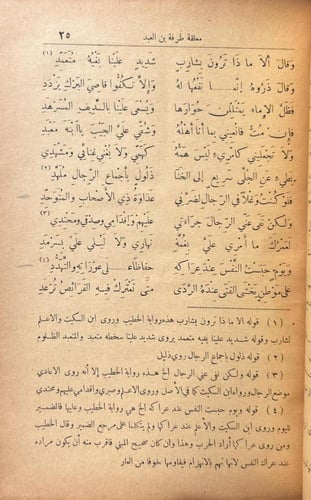 معلقة طرفة بن العبد ٢٥
وَقَالَ أَلاَ مَا ذَا تَرَوْنَ بِشَارِبٍ شَدِيدٍ عَلَيْنَا بَغْيُهُ مُتَعَمِّدِ (١)
وَقَالَ ذَرُوهُ إِنَّمَا نَفْعُهَا لَهُ وَإِلاَّ تَكُفُّوا قَاصِيَ الْبَرْكِ يَزْدَدِ
فَظَلَّ الإِمَاءُ يَمْتَلِلْنَ حُوَارَهَا وَيُسْعَى عَلَيْنَا بِالسَّدِيفِ الْمُسَرْهَدِ
فَإِنْ مُتُّ فَانْعِينِي بِمَا أَنَا أَهْلُهُ وَشُقِّي عَلَيَّ الْجَيْبَ يَا ابْنَةَ مَعْبَدِ
وَلاَ تَجْعَلِينِي كَامْرِىءٍ لَيْسَ هَمُّهُ كَهَمِّي وَلاَ يُغْنِي غَنَائِي وَمَشْهَدِي
بَطِيءٍ عَنِ الْجُلَّى سَرِيعٍ إِلَى الْخَنَا ذَلُولٍ بِأَجْمَاعِ الرِّجَالِ مُلَهَّدِ (٢)
فَلَوْ كُنْتُ وَغْلاً فِي الرِّجَالِ لَضَرَّنِي عَدَاوَةُ ذِي الأَصْحَابِ وَالْمُتَوَحِّدِ
وَلَكِنْ نَفَى عَنِّي الرِّجَالَ جَرَاءَتِي عَلَيْهِمْ وَإِقْدَامِي وَصِدْقِي وَمَحْتِدِي (٣)
لَعَمْرُكَ مَا أَمْرِي عَلَيَّ بِغُمَّةٍ نَهَارِي وَلاَ لَيْلِي عَلَيَّ بِسَرْمَدِ
وَيَوْمٍ حَبَسْتُ النَّفْسَ عِنْدَ عِرَاكِهِ حِفَاظًا عَلَى عَوْرَاتِهِ وَالتَّهَدُّدِ (٤)
عَلَى مَوْطِنٍ يَخْشَى الْفَتَى عِنْدَهُ الرَّدَى مَتَى تَعْتَرِكْ فِيهِ الْفَرَائِصُ تُرْعَدِ
(١) قوله ألا ما ذا ترون بشارب هذه رواية الخطيب وروى ابن السكيت والاعلم
لشارب وقوله شديد علينا بغيه متعمد يروى شديد علينا سخطه متعبد والمتعبد الظلوم
(٢) قوله ذلول باجماع الرجال روي ذليل
(٣) قوله ولكن نفى عني الرجال الخ هذه رواية الخطيب إلا أنه روى الاعادي
موضع الرجال ورواه ابن السكيت كما في الأصل وروى الاعلم وصبري واقدامي عليهم ومحتدي
(٤) قوله ويوم حبست النفس عند عراكه الخ هي رواية الخطيب وعليها فالضمير
لليوم وروى ابن السكيت والأعلم عند عراكها ولم يتكلما على مرجع الضمير وقال
ومن روى عراكها أراد الحرب وهذا وان كان صحيح المعنى فاقرب منه أن يكون مراده
عند عراك النفس لانها تهم بالانهزام فيقاومها خوفا من العار